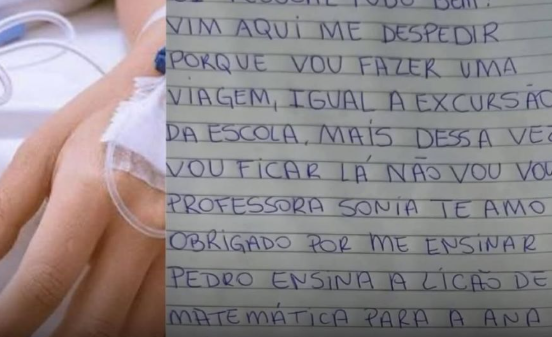 TUDO BEM?
VIM AQUI ME DESPEDIR
PORQUE VOU FAZER UMA
VIAGEM, IGUAL A EXCURSÃO
DA ESCOLA, MAIS DESSA VEZ
VOU FICAR LÁ NÃO VOU
PROFESSORA SONIA TE AMO
OBRIGADO POR ME ENSINAR
PEDRO ENSINA A LIÇÃO DE
MATEMÁTICA PARA A ANA